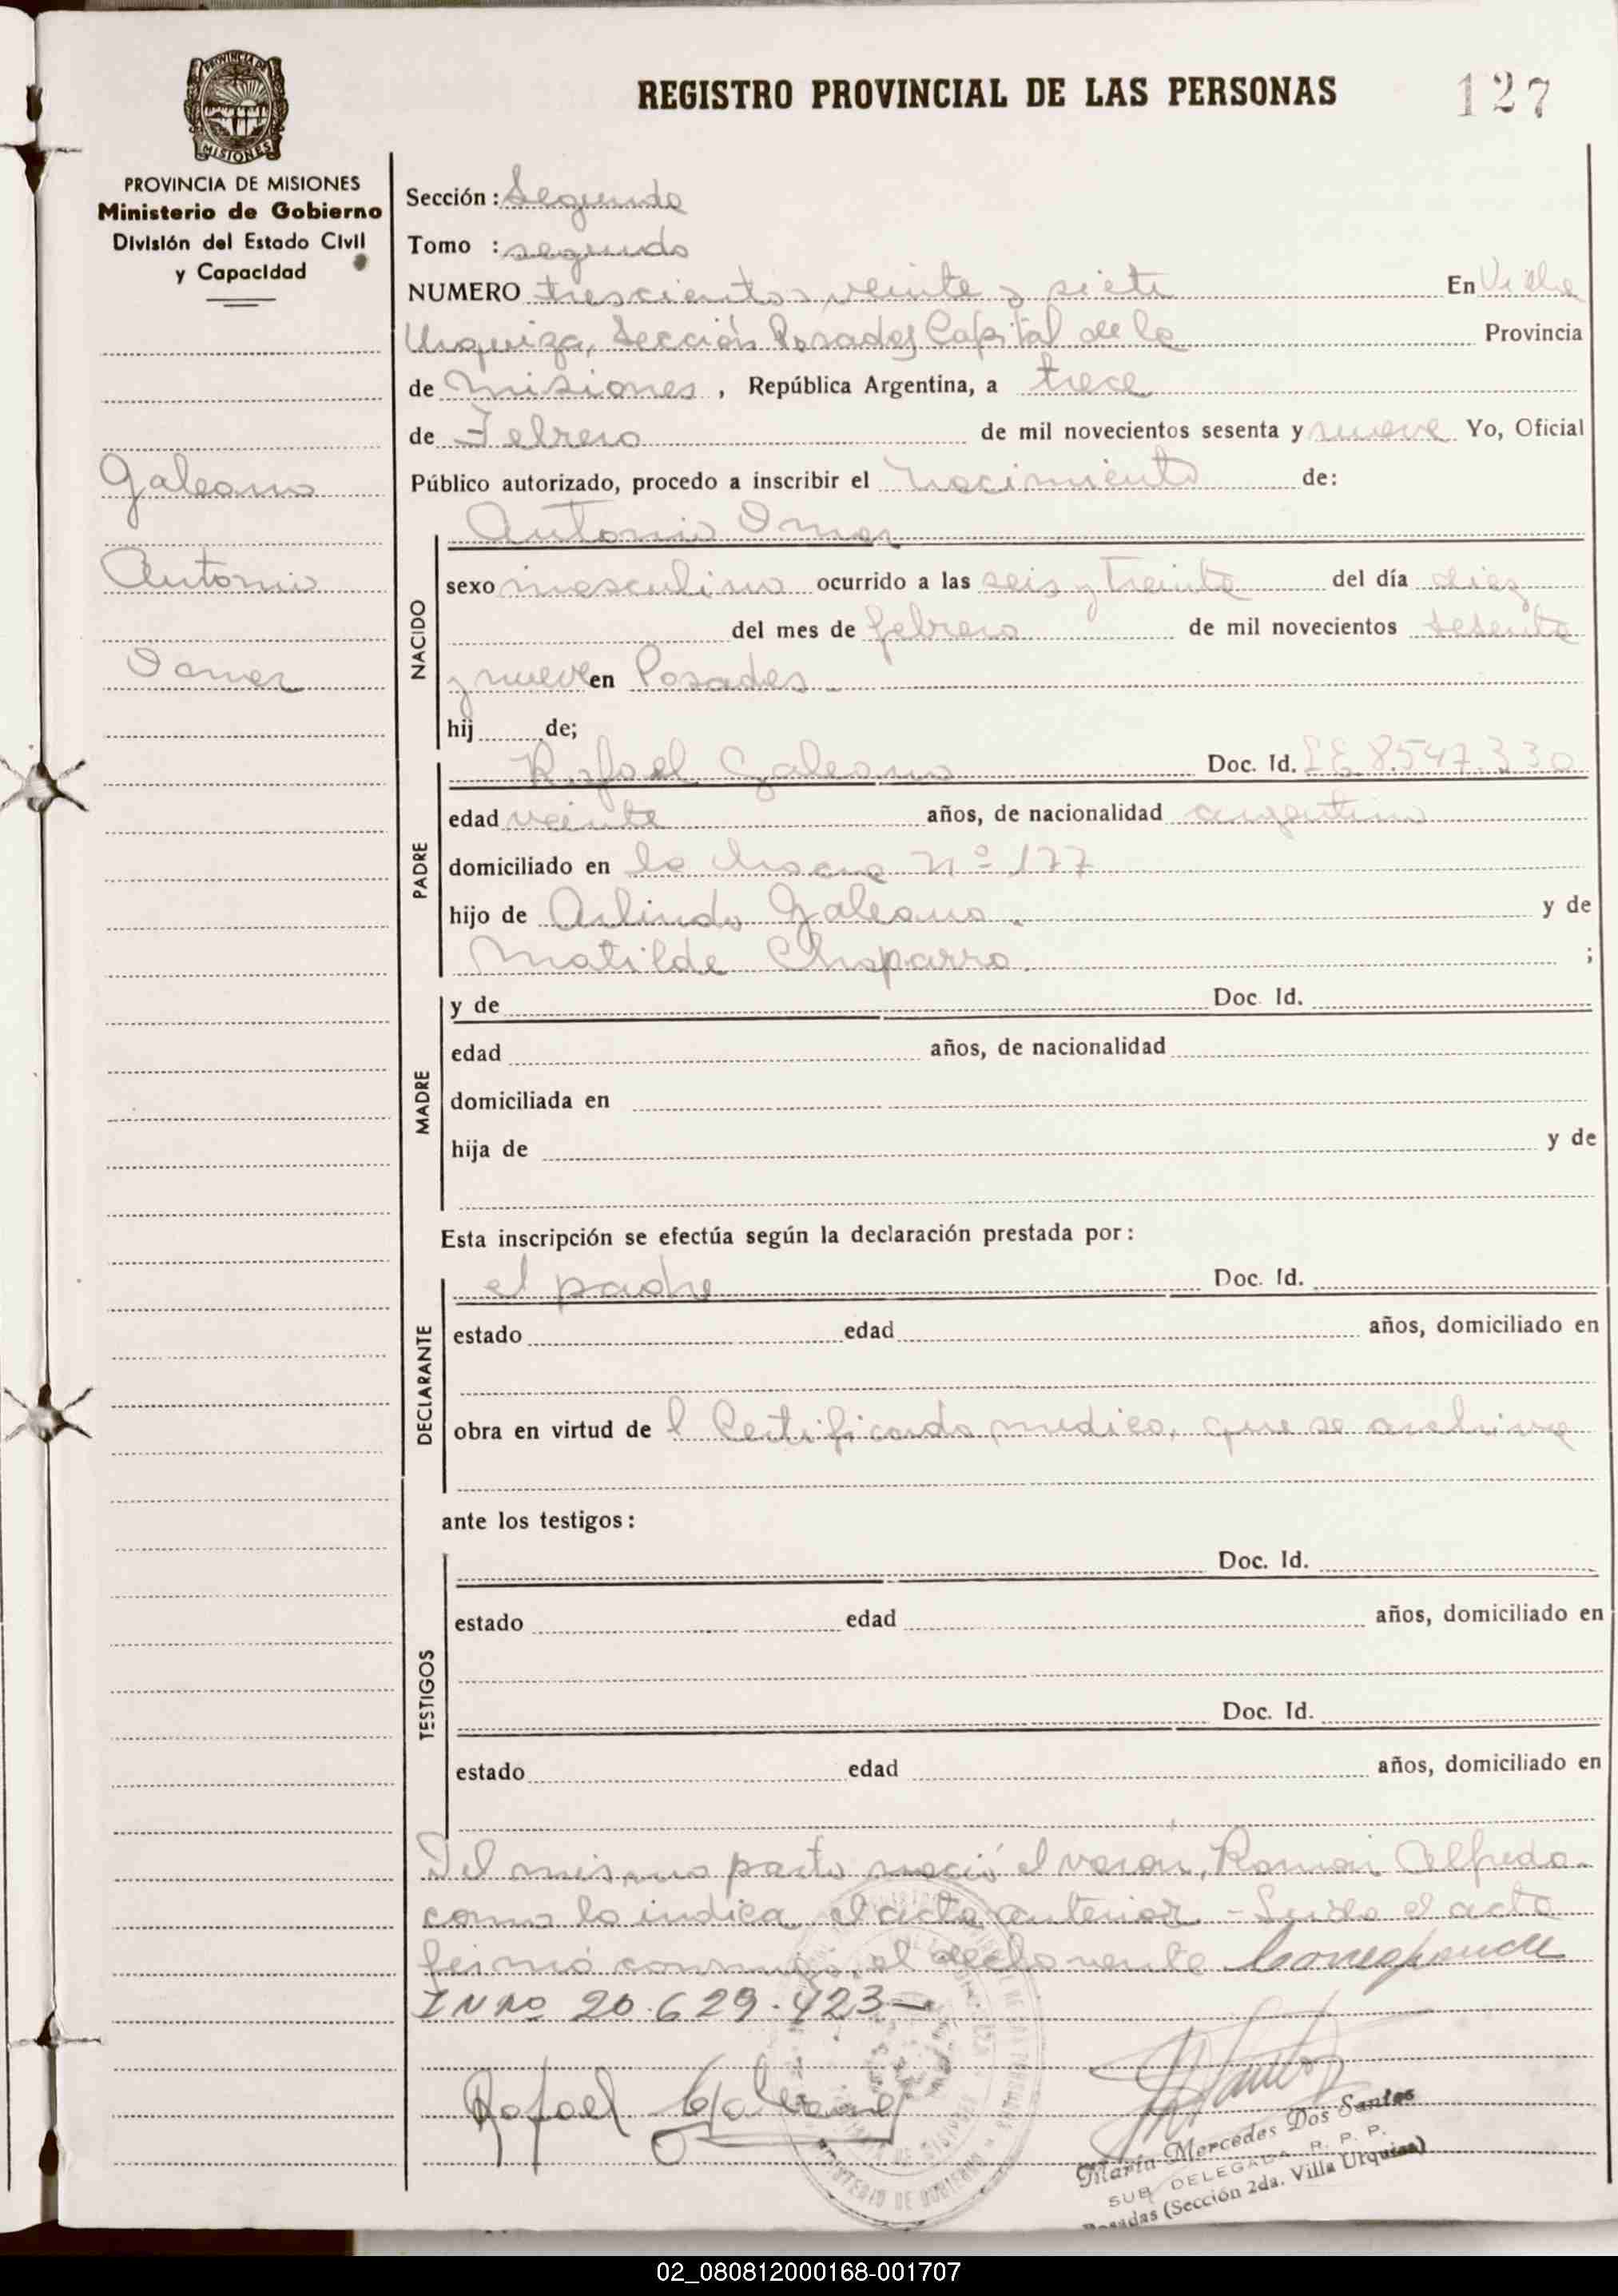 PROVINCIA DE
MISIONES
REGISTRO PROVINCIAL DE LAS PERSONAS
127
PROVINCIA DE MISIONES
Ministerio de Gobierno
División del Estado Civil
y Capacidad
Galeano
Antonio
Omar
Sección : Segunda
Tomo : segundo
NUMERO trescientos veinte y siete En Villa
Urquiza, Sección Posadas Capital de la Provincia
de Misiones, República Argentina, a trece
de Febrero de mil novecientos sesenta y nueve Yo, Oficial
Público autorizado, procedo a inscribir el nacimiento de:
Antonio Omar
NACIDO
sexo masculino ocurrido a las seis y treinta del día diez
del mes de febrero de mil novecientos sesenta
y nueve en Posadas
hij de;
PADRE
Rafael Galeano Doc. Id. LE 8.547.330
edad veinte años, de nacionalidad argentino
domiciliado en la chacra nº 177
hijo de Arlindo Galeano. y de
Matilde Chaparro. ;
MADRE
y de Doc Id.
edad años, de nacionalidad
domiciliada en
hija de y de
Esta inscripción se efectúa según la declaración prestada por :
DECLARANTE
el padre Doc. Id.
estado edad años, domiciliado en
obra en virtud de l Certificado medico, que se archiva
ante los testigos :
TESTIGOS
Doc. Id.
estado edad años, domiciliado en
Doc. Id.
estado edad años, domiciliado en
Del mismo parto nació el varón, Ramón Alfredo
como lo indica el acta anterior - Leída el acta
firmó conmigo el declarante Corresponde
20.629.423-
Rafael Galeano
María Mercedes Dos Santos
SUB DELEGADA R. P. P.
Posadas (Sección 2da. Villa Urquiza)
MINISTERIO DE GOBIERNO
02_080812000168-001707